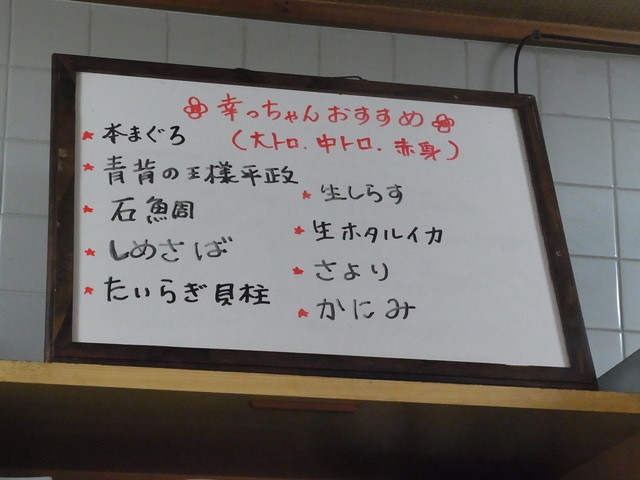 幸っちゃんおすすめ
本まぐろ (大トロ.中トロ.赤身)
青背の王様平政
石鯛
しめさば
たいらぎ貝柱
生しらす
生ホタルイカ
さより
かにみ